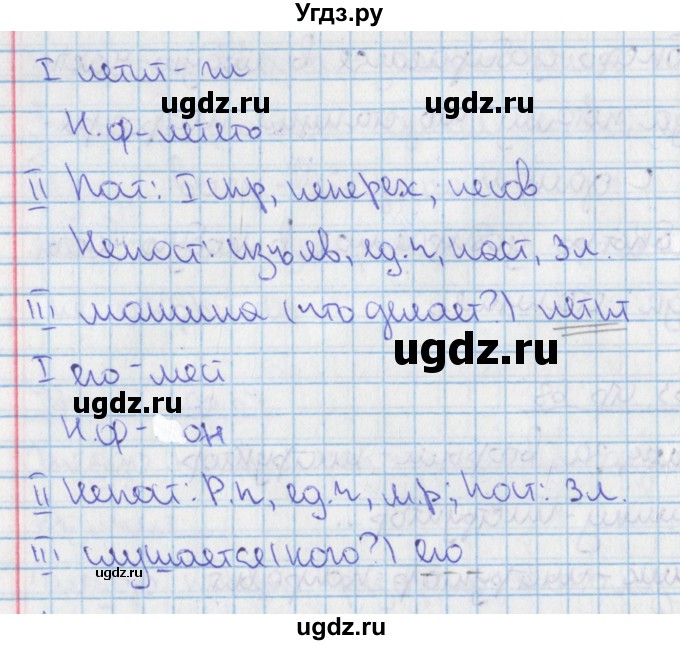 Угдз.ру
I летит - гл
ugdz.ru ugdz.ru
Н.ф - лететь
II Пост: I спр, неперех, несов
Непост: изъяв, ед.ч, наст, 3 л.
III машина (что делает?) летит
ugdz.ru
I его - мест
ugdz.ru
Н.ф - он
II Непост: Р.п, ед.ч, м.р; Пост: 3 л.
III слушается (кого?) его
ugdz.ru
ugdz.ru